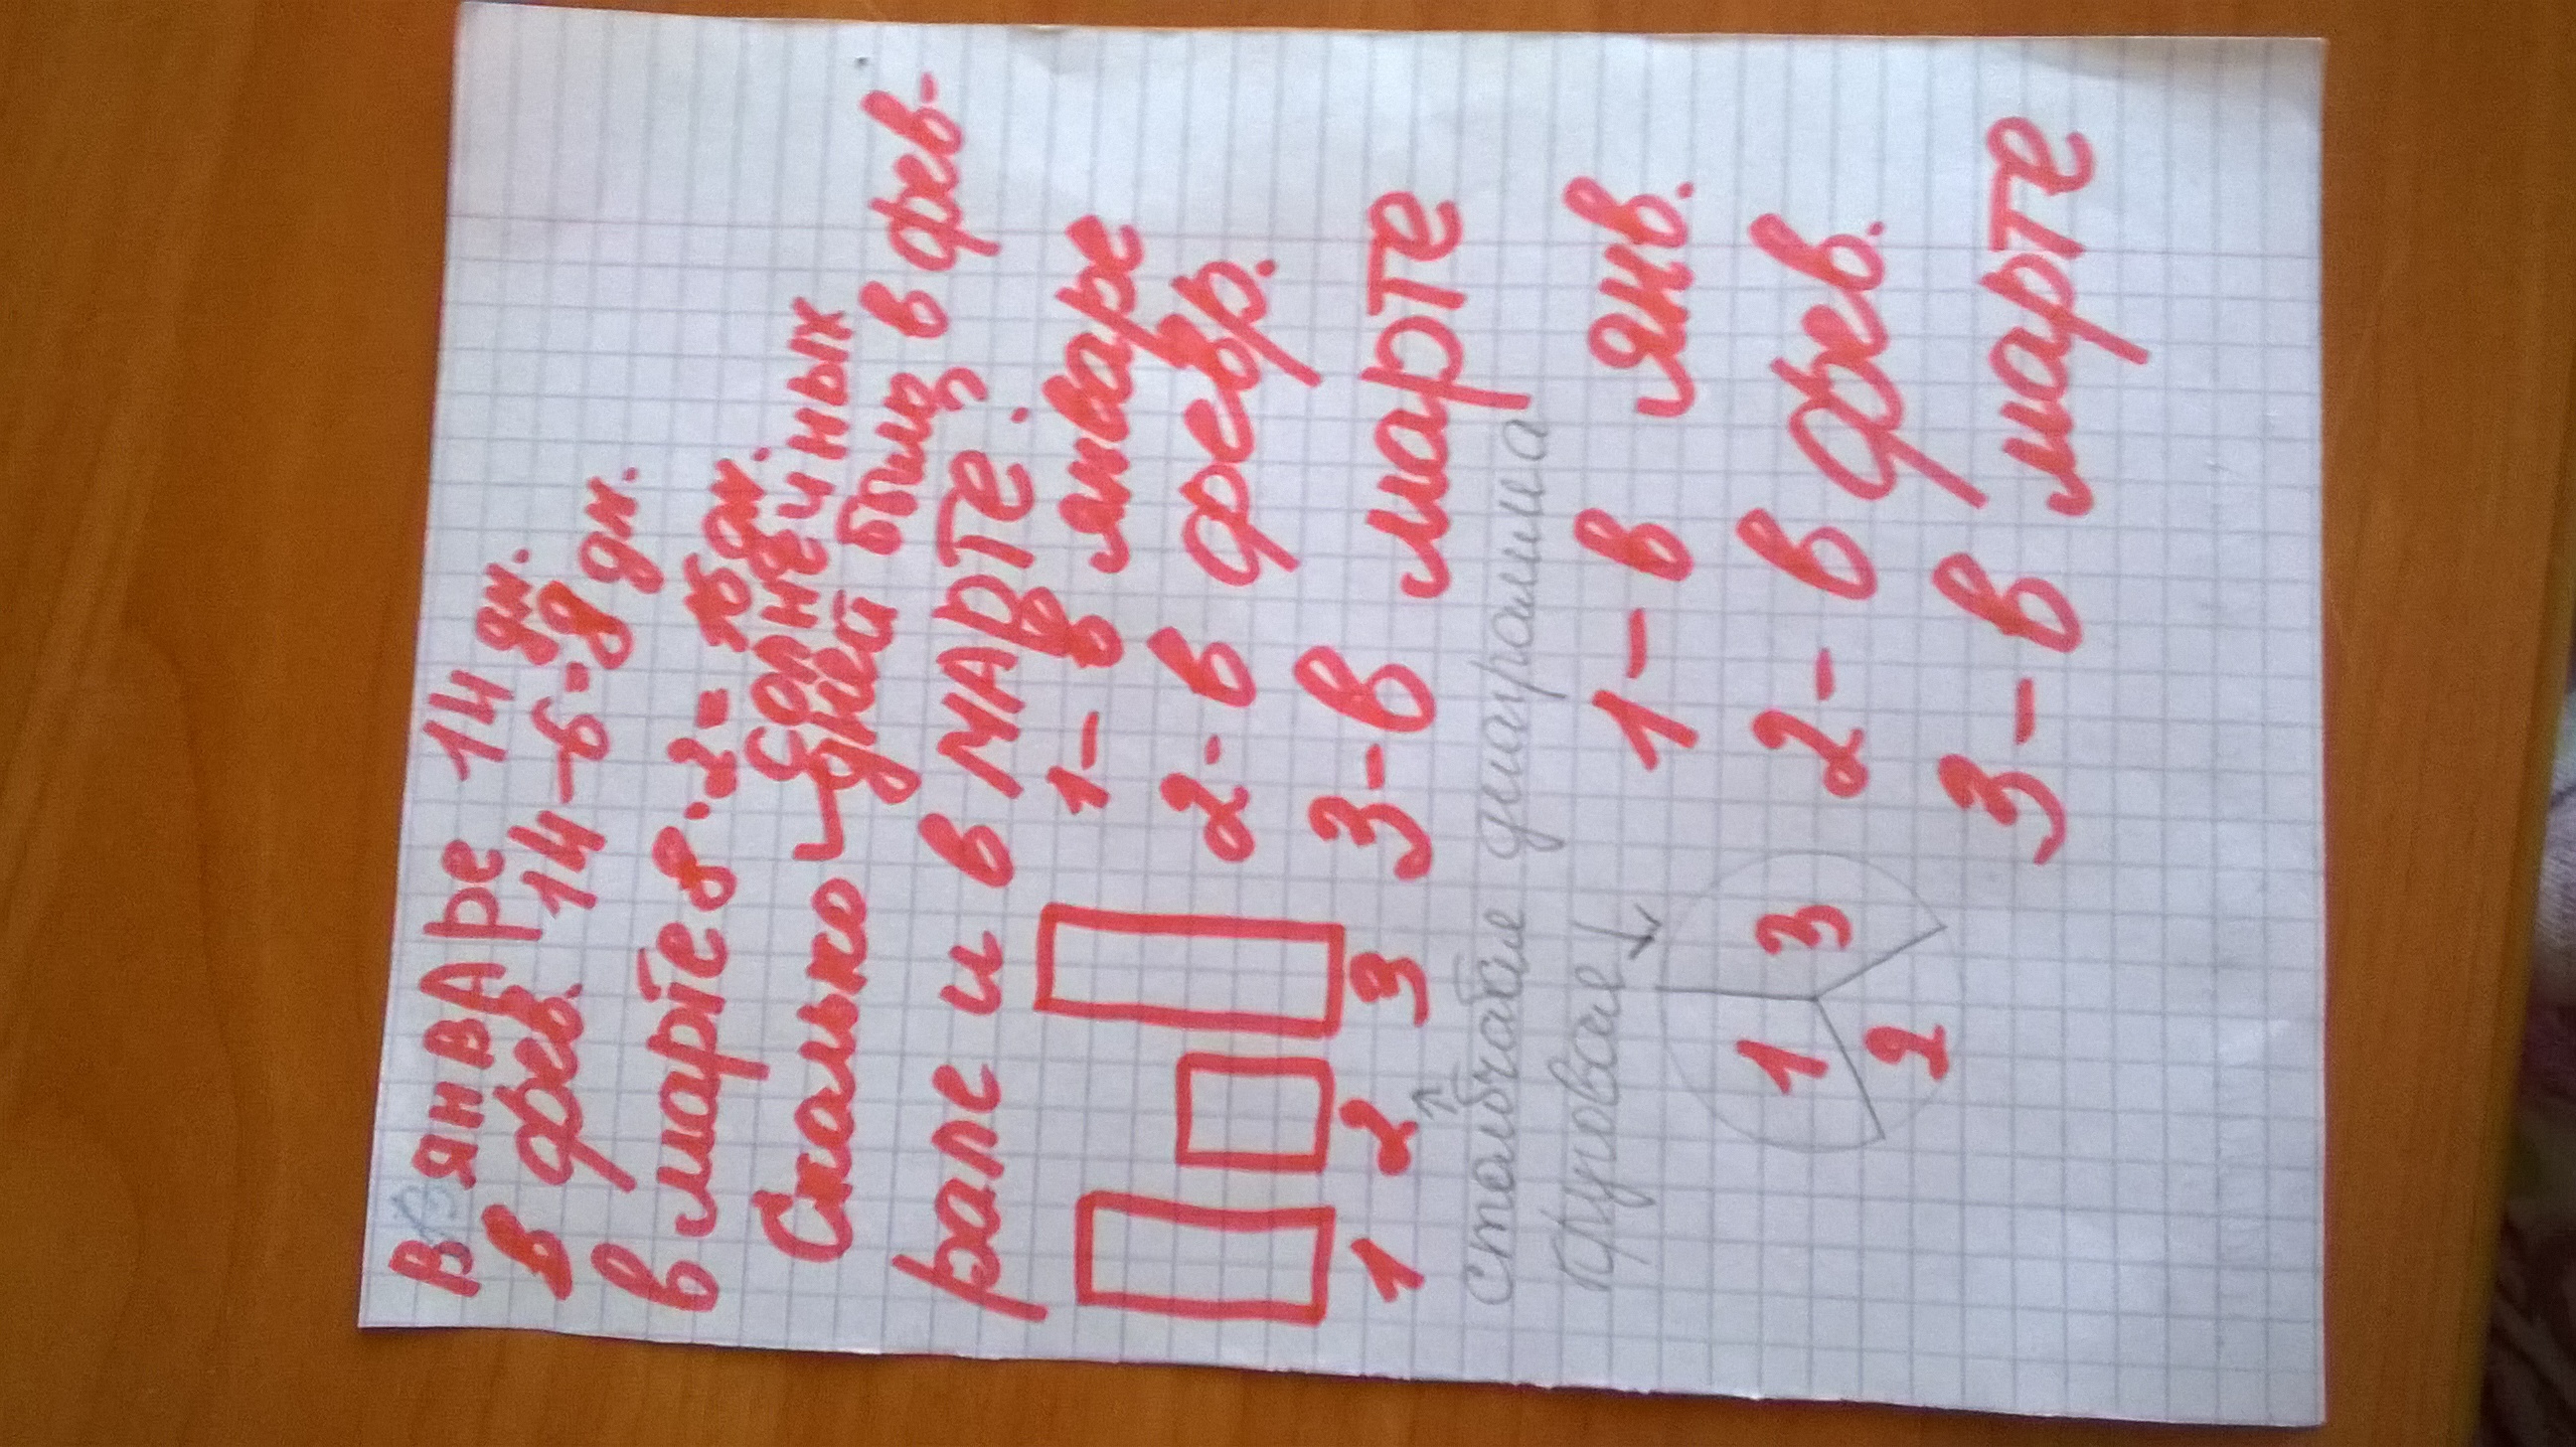 В ЯНВАРе 14 дн.
в фев. 14-6=8 дн.
в марте 8·2= 16 дн.
Сколько солнечных
дней было в фев-
рале и в МАРТЕ.
1- в январе
2- в февр.
3-в марте
1 2 3
столбчатая диаграмма
круговая
1 - в янв.
2- в фев.
3-в марте
1 3
2